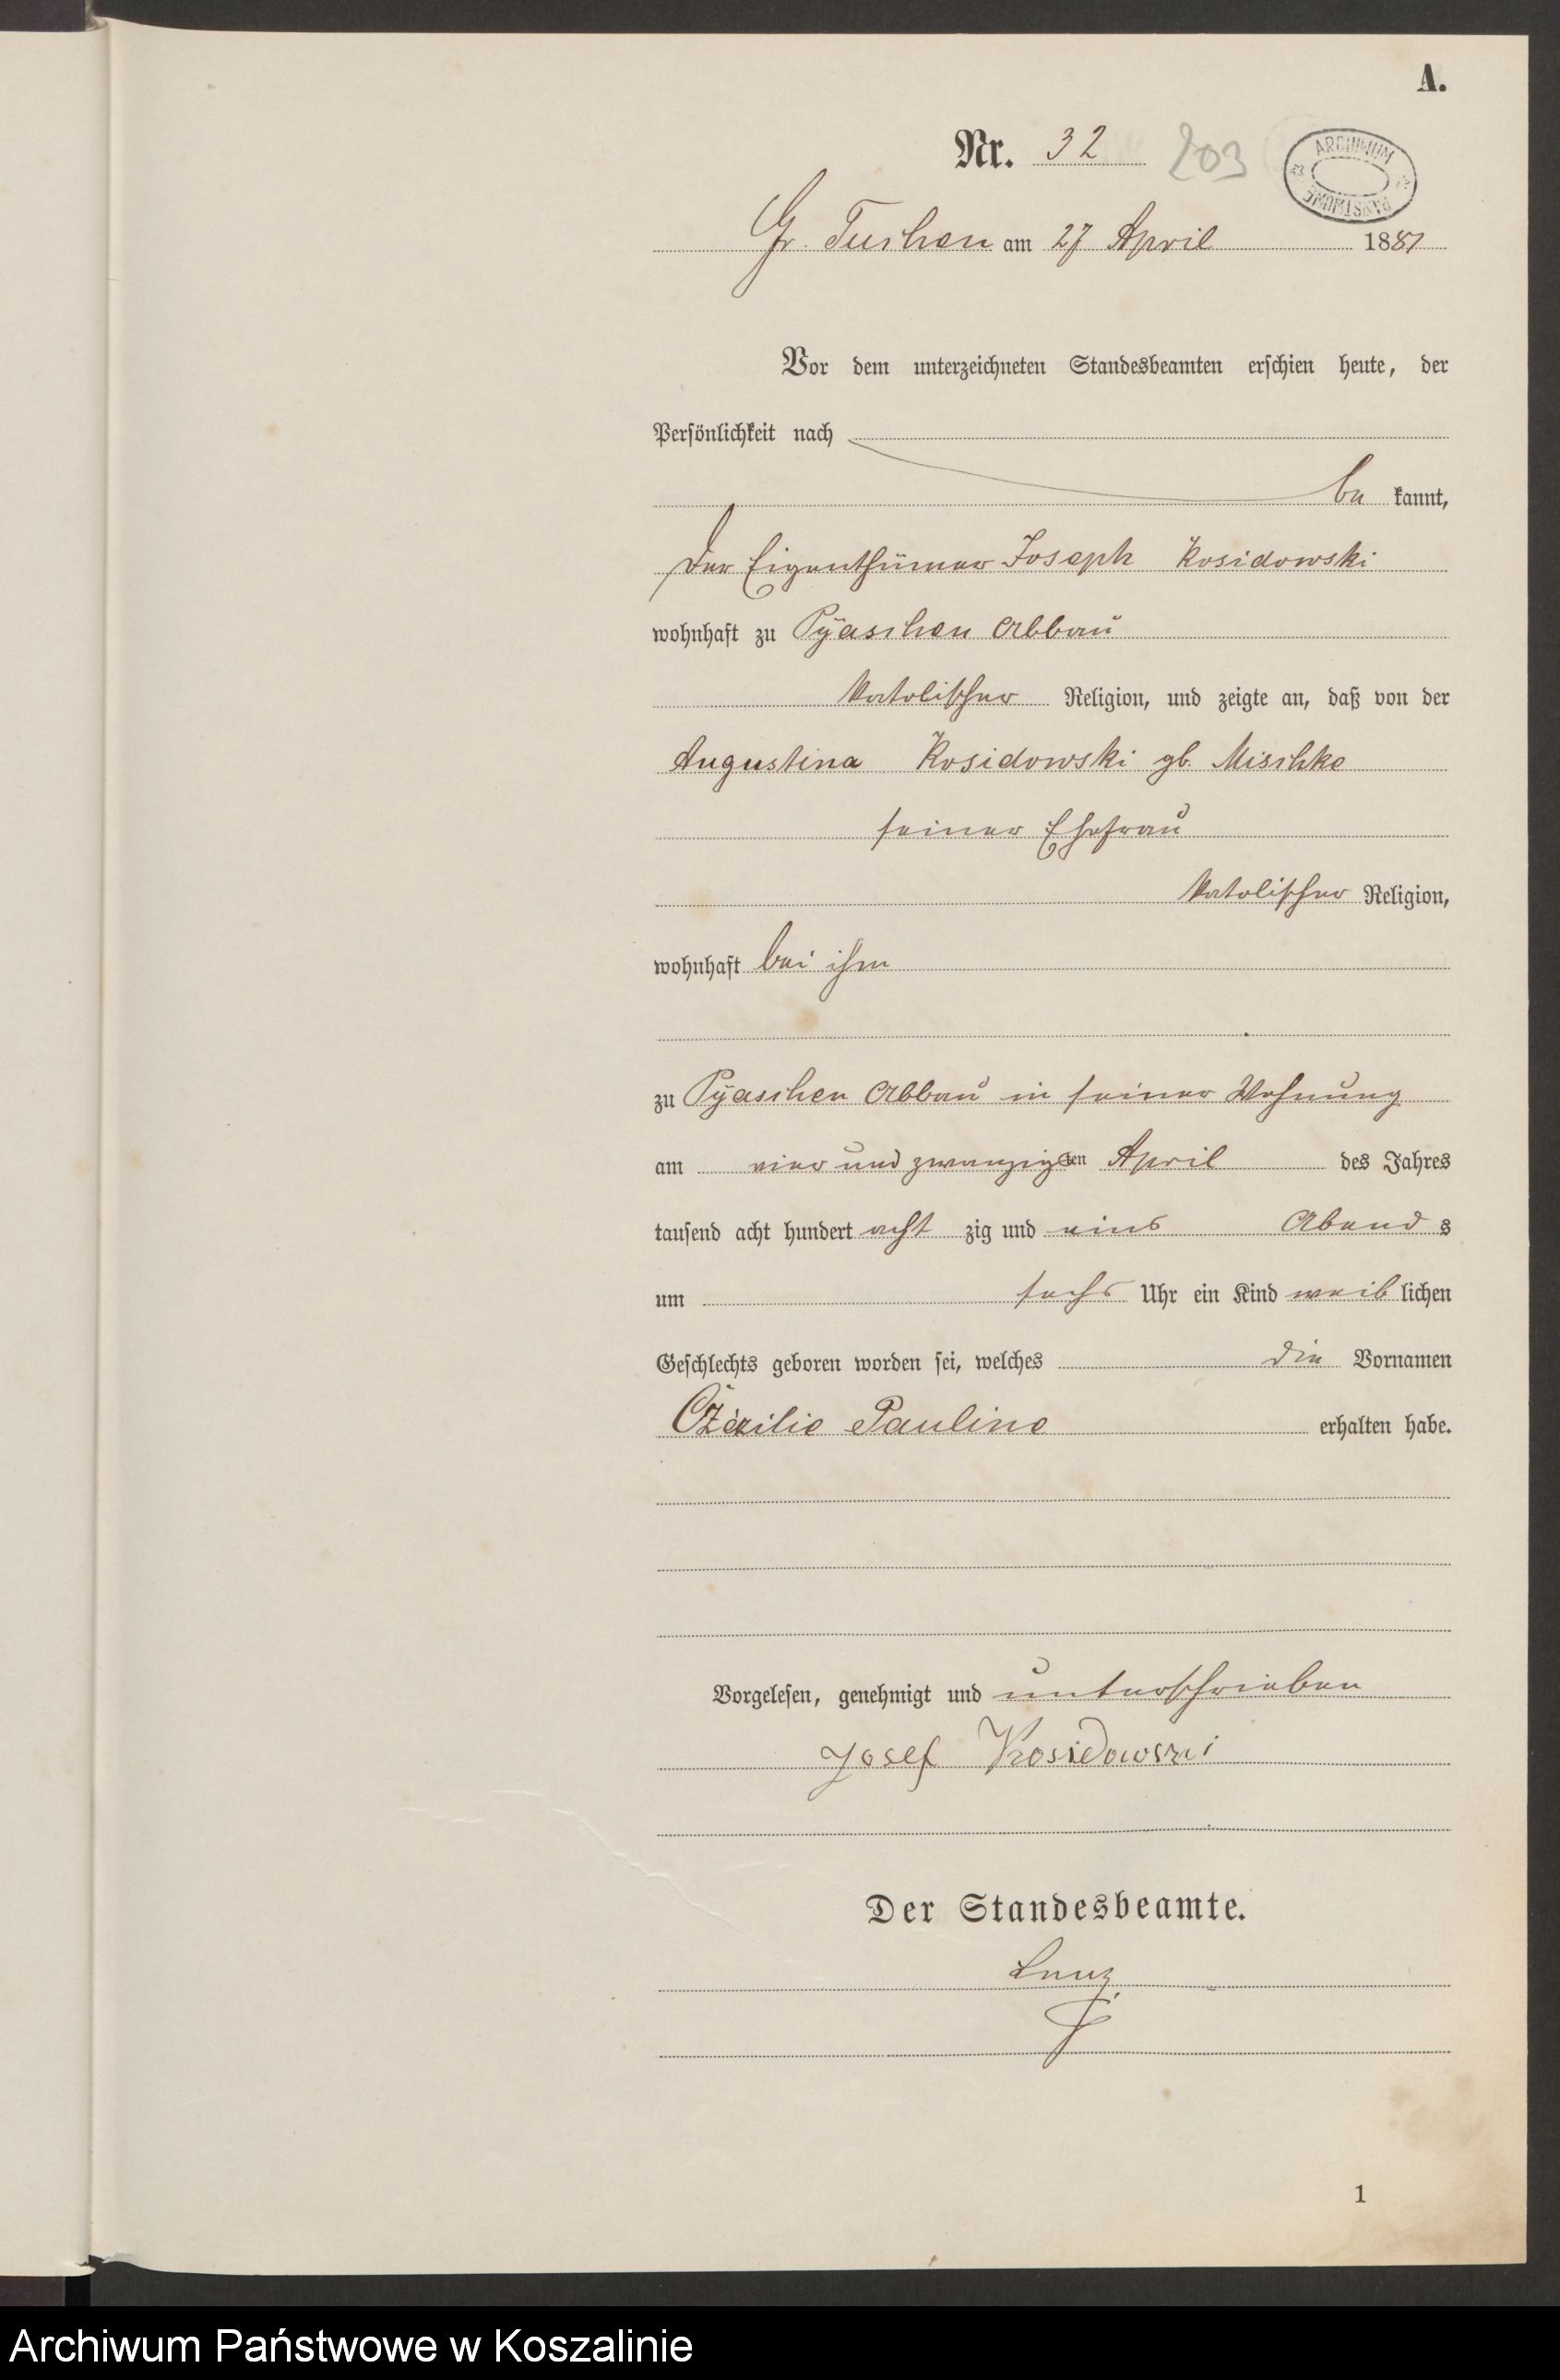 A.
Nr. 32 203
ARCHIWUM PAŃSTWOWE
Gr. Tuchen am 27 April 1881
Vor dem unterzeichneten Standesbeamten erschien heute, der
Persönlichkeit nach
be kannt,
der Eigenthümer Joseph Kosidowski
wohnhaft zu Pyaschen Abbau
katolischer Religion, und zeigte an, daß von der
Augustina Kosidowski gb. Mischke
seiner Ehefrau
katolischer Religion,
wohnhaft bei ihm
zu Pyaschen Abbau in seiner Wohnung
am vier und zwanzigsten April des Jahres
tausend acht hundert acht zig und eins Abend s
um sechs Uhr ein Kind weib lichen
Geschlechts geboren worden sei, welches die Vornamen
Pauline erhalten habe.
Vorgelesen, genehmigt und unterschrieben
Josef Kosidowski
Der Standesbeamte.
1
Archiwum Państwowe w Koszalinie